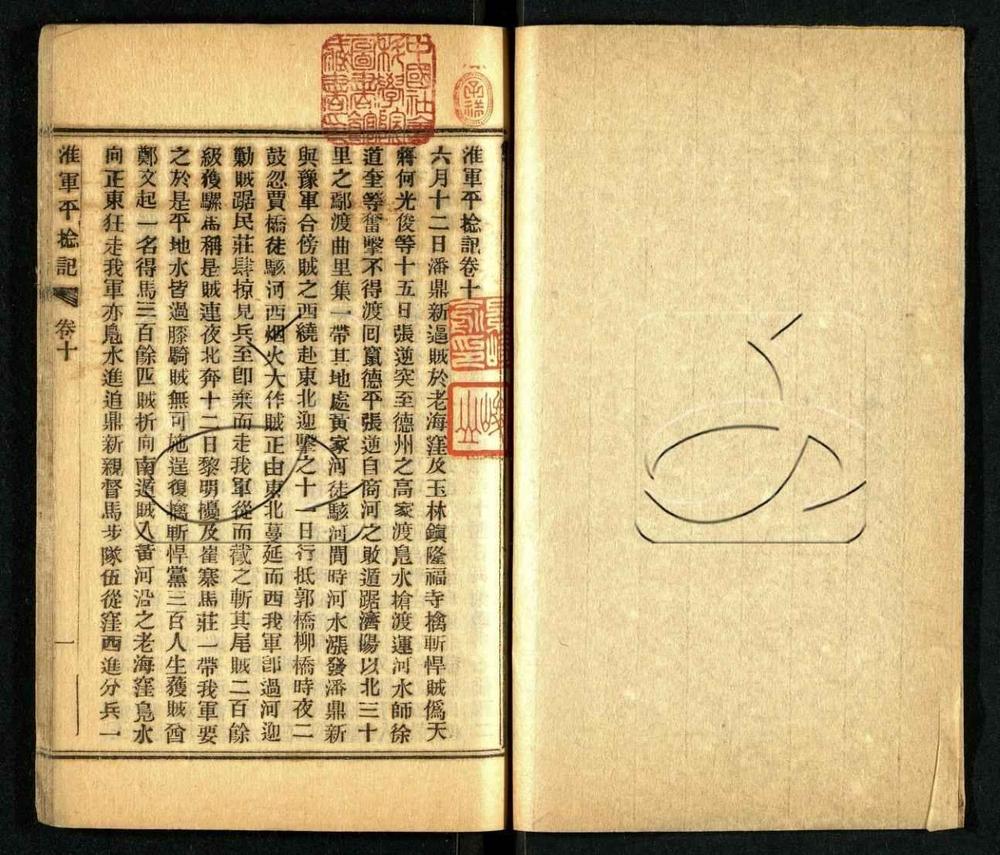 淮軍平捻記卷十
六月十二日潘鼎新逼賊於老海窪及玉林鎮隆福寺擒斬悍賊僞天
將何光俊等十五日張逆突至德州之高家渡鳧水搶渡運河水師徐
道奎等奮擊不得渡回竄德平張逆自商河之敗遁踞濟陽以北三十
里之鄢渡曲里集一帶其地處黃家河徒駭河間時河水漲發潘鼎新
與豫軍合傍賊之西繞赴東北迎擊之十一日行抵郭橋柳橋時夜二
鼓忽賈橋徒駭河西烟火大作賊正由東北蔓延而西我軍卽過河迎
勦賊踞民莊肆掠見兵至卽棄而走我軍從而截之斬其尾賊二百餘
級獲騾馬稱是賊連夜北奔十二日黎明擾及崔寨馬莊一帶我軍要
之於是平地水皆過膝騎賊無可馳逞復擒斬悍黨三百人生獲賊酋
鄭文起一名得馬三百餘匹賊折向南遁賊入黃河沿之老海窪鳧水
向正東狂走我軍亦鳧水進追鼎新親督馬步隊伍從窪西進分兵一
淮軍平捻記 卷十 一
中國社會
科學院
圖書館
藏書印